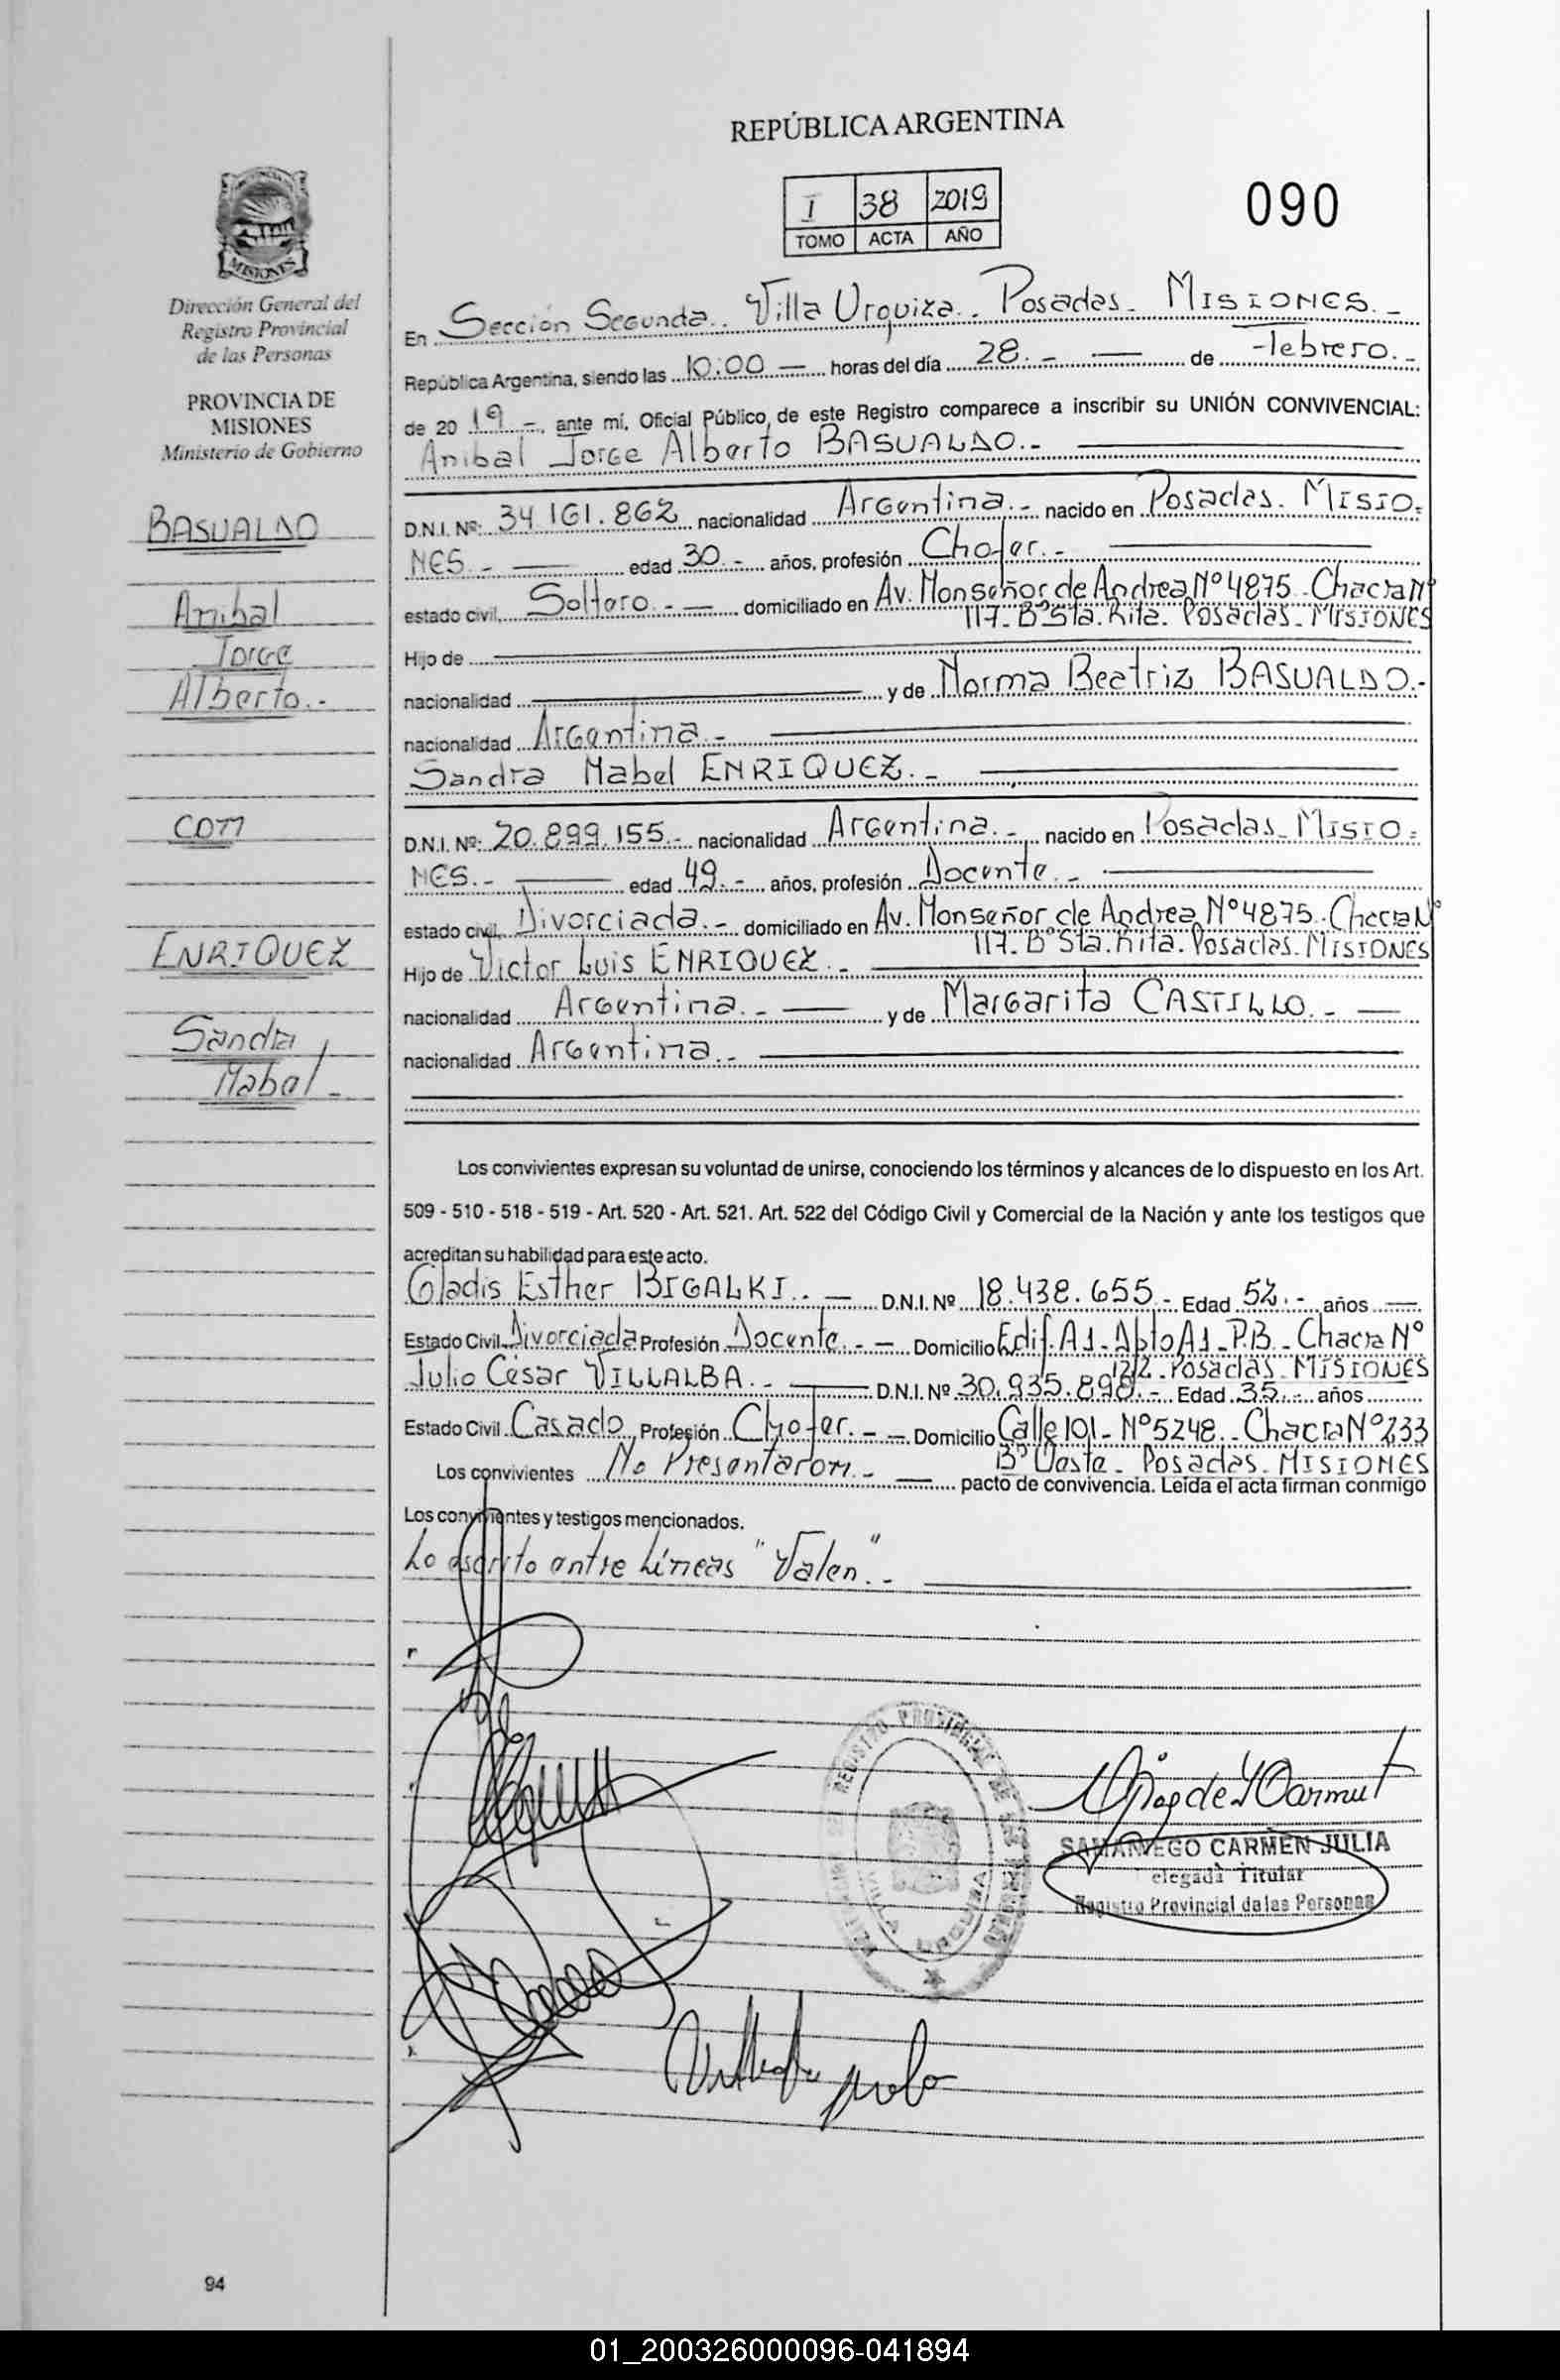 REPÚBLICA ARGENTINA
I 38 2019
TOMO ACTA AÑO
090
MISIONES
Dirección General del
Registro Provincial
de las Personas
PROVINCIA DE
MISIONES
Ministerio de Gobierno
BASUALDO
Anibal
Jorge
Alberto.-
con
ENRIQUEZ
Sandra
Mabel.-
En Sección Segunda.. Villa Urquiza.. Posadas.- MISIONES.-
República Argentina, siendo las 10:00 horas del día 28.- de Febrero.-
de 2019.-, ante mí, Oficial Público, de este Registro comparece a inscribir su UNIÓN CONVIVENCIAL:
Anibal Jorge Alberto BASUALDO.-
D.N.I. Nº: 34.161.862 nacionalidad Argentina.- nacido en Posadas. MISIO-
NES.- edad 30.- años, profesión Chofer.-
estado civil Soltero.- domiciliado en Av. Monseñor de Andrea Nº 4875.-Chacra Nº
117-Bº Sta. Rita. Posadas.-MISIONES
Hijo de
nacionalidad y de Norma Beatriz BASUALDO.-
nacionalidad Argentina.-
Sandra Mabel ENRIQUEZ.-
D.N.I. Nº: 20.899.155.- nacionalidad Argentina.- nacido en Posadas-MISIO-
NES.- edad 49.- años, profesión Docente.-
estado civil Divorciada.- domiciliado en Av. Monseñor de Andrea Nº 4875.-Chacra Nº
117-Bº Sta. Rita. Posadas.-MISIONES
Hijo de Victor Luis ENRIQUEZ.-
nacionalidad Argentina.- y de Margarita CASTILLO.-
nacionalidad Argentina.-
Los convivientes expresan su voluntad de unirse, conociendo los términos y alcances de lo dispuesto en los Art.
509 - 510 - 518 - 519 - Art. 520 - Art. 521. Art. 522 del Código Civil y Comercial de la Nación y ante los testigos que
acreditan su habilidad para este acto.
Gladis Esther BIGALKI.- D.N.I. Nº 18.438.655.- Edad 52.- años
Estado Civil Divorciada Profesión Docente.- Domicilio Edif. A1-Dpto A1-P.B.-Chacra Nº
122.Posadas-MISIONES
Julio César VILLALBA.- D.N.I. Nº 30.935.890.- Edad 35.- años
Estado Civil Casado Profesión Chofer.- Domicilio Calle 101-Nº5248.-Chacra Nº 233
Bº Oeste- Posadas-MISIONES
Los convivientes No Presentaron.- pacto de convivencia. Leída el acta firman conmigo
Los convivientes y testigos mencionados.
Lo escrito entre Líneas "Valen".-
REGISTRO PROVINCIAL DE
VILLA URQUIZA
SAMANIEGO CARMEN JULIA
elegada Titular
Registro Provincial de las Personas
94
01_200326000096-041894